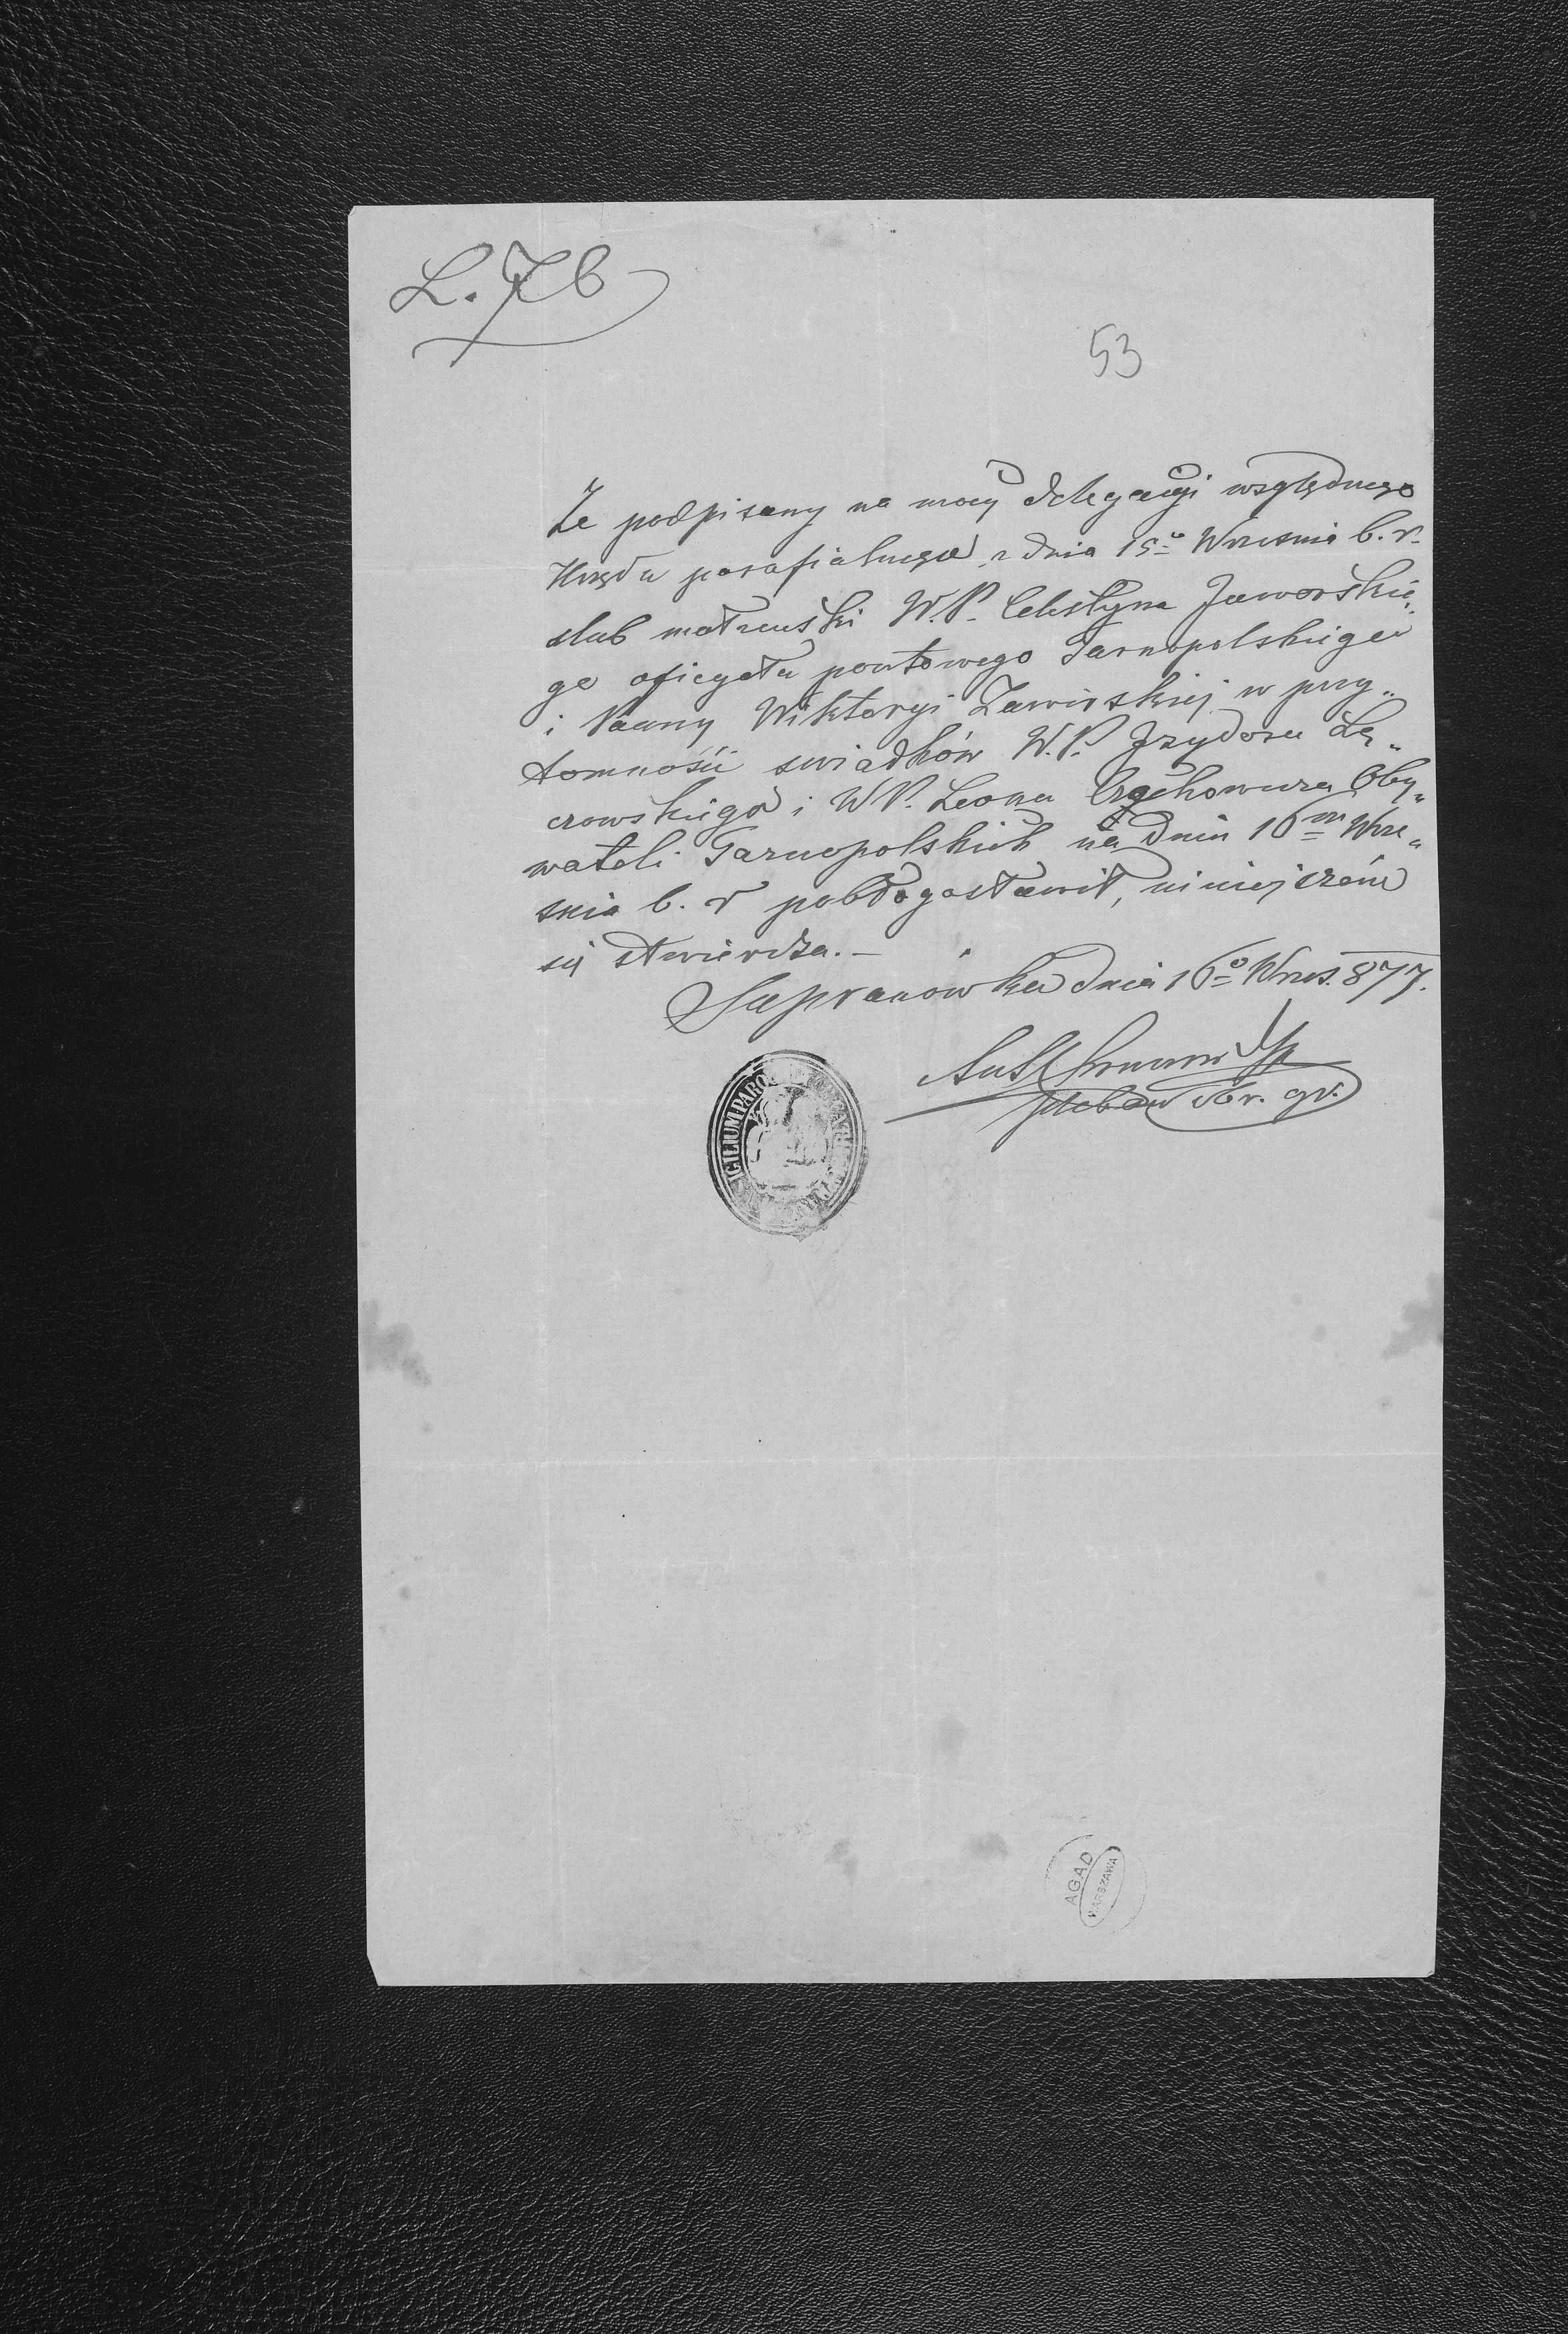 L. 76
53
Że podpisany na mocy delegacyi względnego
Urzędu parafialnego z dnia 15º Września b. r.
slub matżeński W.P. Celestyna Jaworskie„
go oficyała pocztowego Tarnopolskiego
i Panny Wiktoryi Zawirskiej w przy„
tomności swiadków W.P. Izydora Le„
czowskiego i WP. Leona Obyczkowicza Oby„
wateli Tarnopolskich na dniu 16m Wrze„
snia b. r pobłogosławił, niniejszém
się stwierdza. —
Sapranówka dnia 16º Wrzes. 877.
pleban obr. gr.
AGAD
WARSZAWA